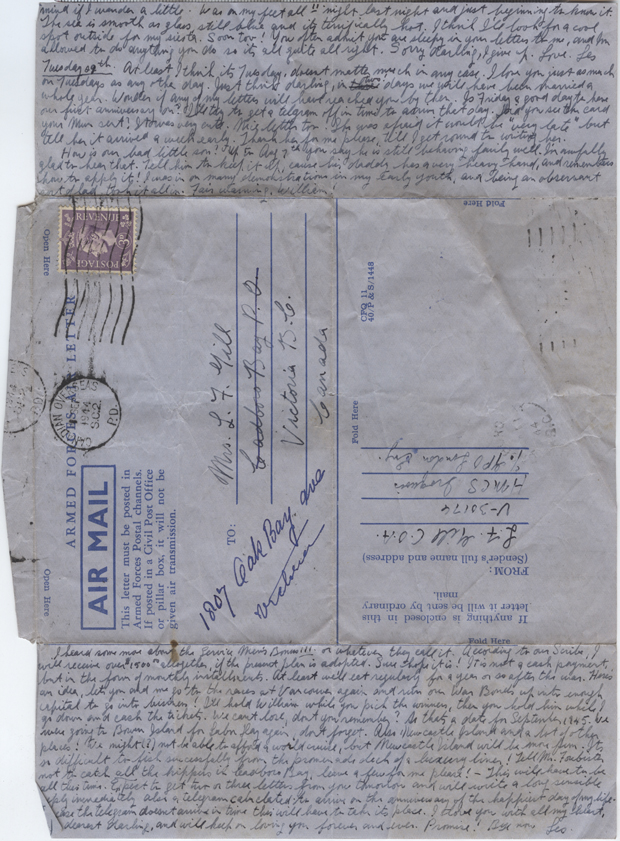 mind if I wander a little. Was on my feet all night last night and just beginning to know it.
The sea is smooth as glass, still blue and its terrifically hot. I think I'll look for a cool
spot outside for my siesta. Soon too! You often admit you are sleepy in your letters to me, and I'm
allowed to do anything you do so its all quite all right. Sorry darling, I give up. Love. Les
Tuesday. At least I think its Tuesday, doesn't matter much in any case. I love you just as much
on Tuesdays as any other day. Just think darling, in days we will have been married a
whole year. Wonder if any of my letters will have reached you by then. Is Friday a good day to have
our first anniversary on? I'll try to get a telegram off in time to arrive that day. Did you see the card
your Mum sent? It was very cute. Nice letter too. She was afraid it would be being late but
tell her it arrived a week early. Thank her for me please, I'll get round to writing her.
How is our bad little son? Up to the you say he is still behaving fairly well. I'm awfully
glad to hear that. Tell him to keep it up cause his daddy has a very heavy hand, and remembers
how to apply it! I was in on many demonstrations in my early youth, and being an observant
William
Fold Here
Open Here
POSTAGE
REVENUE
3D
ARMED FORCES AIR LETTER
1944
P.D.
AIR MAIL
This letter must be posted in
Armed Forces Postal channels.
If posted in a Civil Post Office
or pillar box, it will not be
given air transmission.
Open Here
TO:
Mrs. L. F. Gill
Cadboro Bay P.O
Victoria B.C.
Canada
1807 Oak Bay ave
Victoria
CFQ 11
40/P & S/1448
Fold Here
FROM:
(Sender's full name and address)
L.F. Gill
V-30174
HMCS Iroquois
℅ GPO London Eng.
If anything is enclosed in this
letter it will be sent by ordinary
mail.
Fold Here
I heard some more about the Service Men's Bonus!!! or whatever they call it. According to our Scribe, I
will receive over $1500 altogether, if the present plan is adopted. Sure hope it is! It is not a cash payment,
but in the form of monthly installments. At least we'll eat regularly for a year or so after the war. Here's
an idea, let you and me go to the races at Vancouver again and run our War Bonds up into enough
capital to go into business! I'll hold William while you pick the winners, then you hold him while I
go down and cash the tickets. We can't lose, don't you remember? So thats a date for September 1945. We
were going to Bowen Island for Labor Day again, don't forget. Also Newcastle Island and a lot of other
places! We might(?) not be able to afford a world cruise, but Newcastle Island will be more fun. It's
so difficult to fish successfully from the promenade deck of a luxury liner! Tell Mr.
not to catch all the in Cadboro Bay, leave a few for me please! - This will have to be
all this time. Expect to get two or three letters from you tomorrow and will write a long sensible
reply immediately, also a telegram calculated to arrive on the anniversary of the happiest day of my life.
the telegram doesn't arrive in time this will have to take its place. I love you with all my heart,
dearest darling, and will keep on loving you forever and ever. Promise! Les